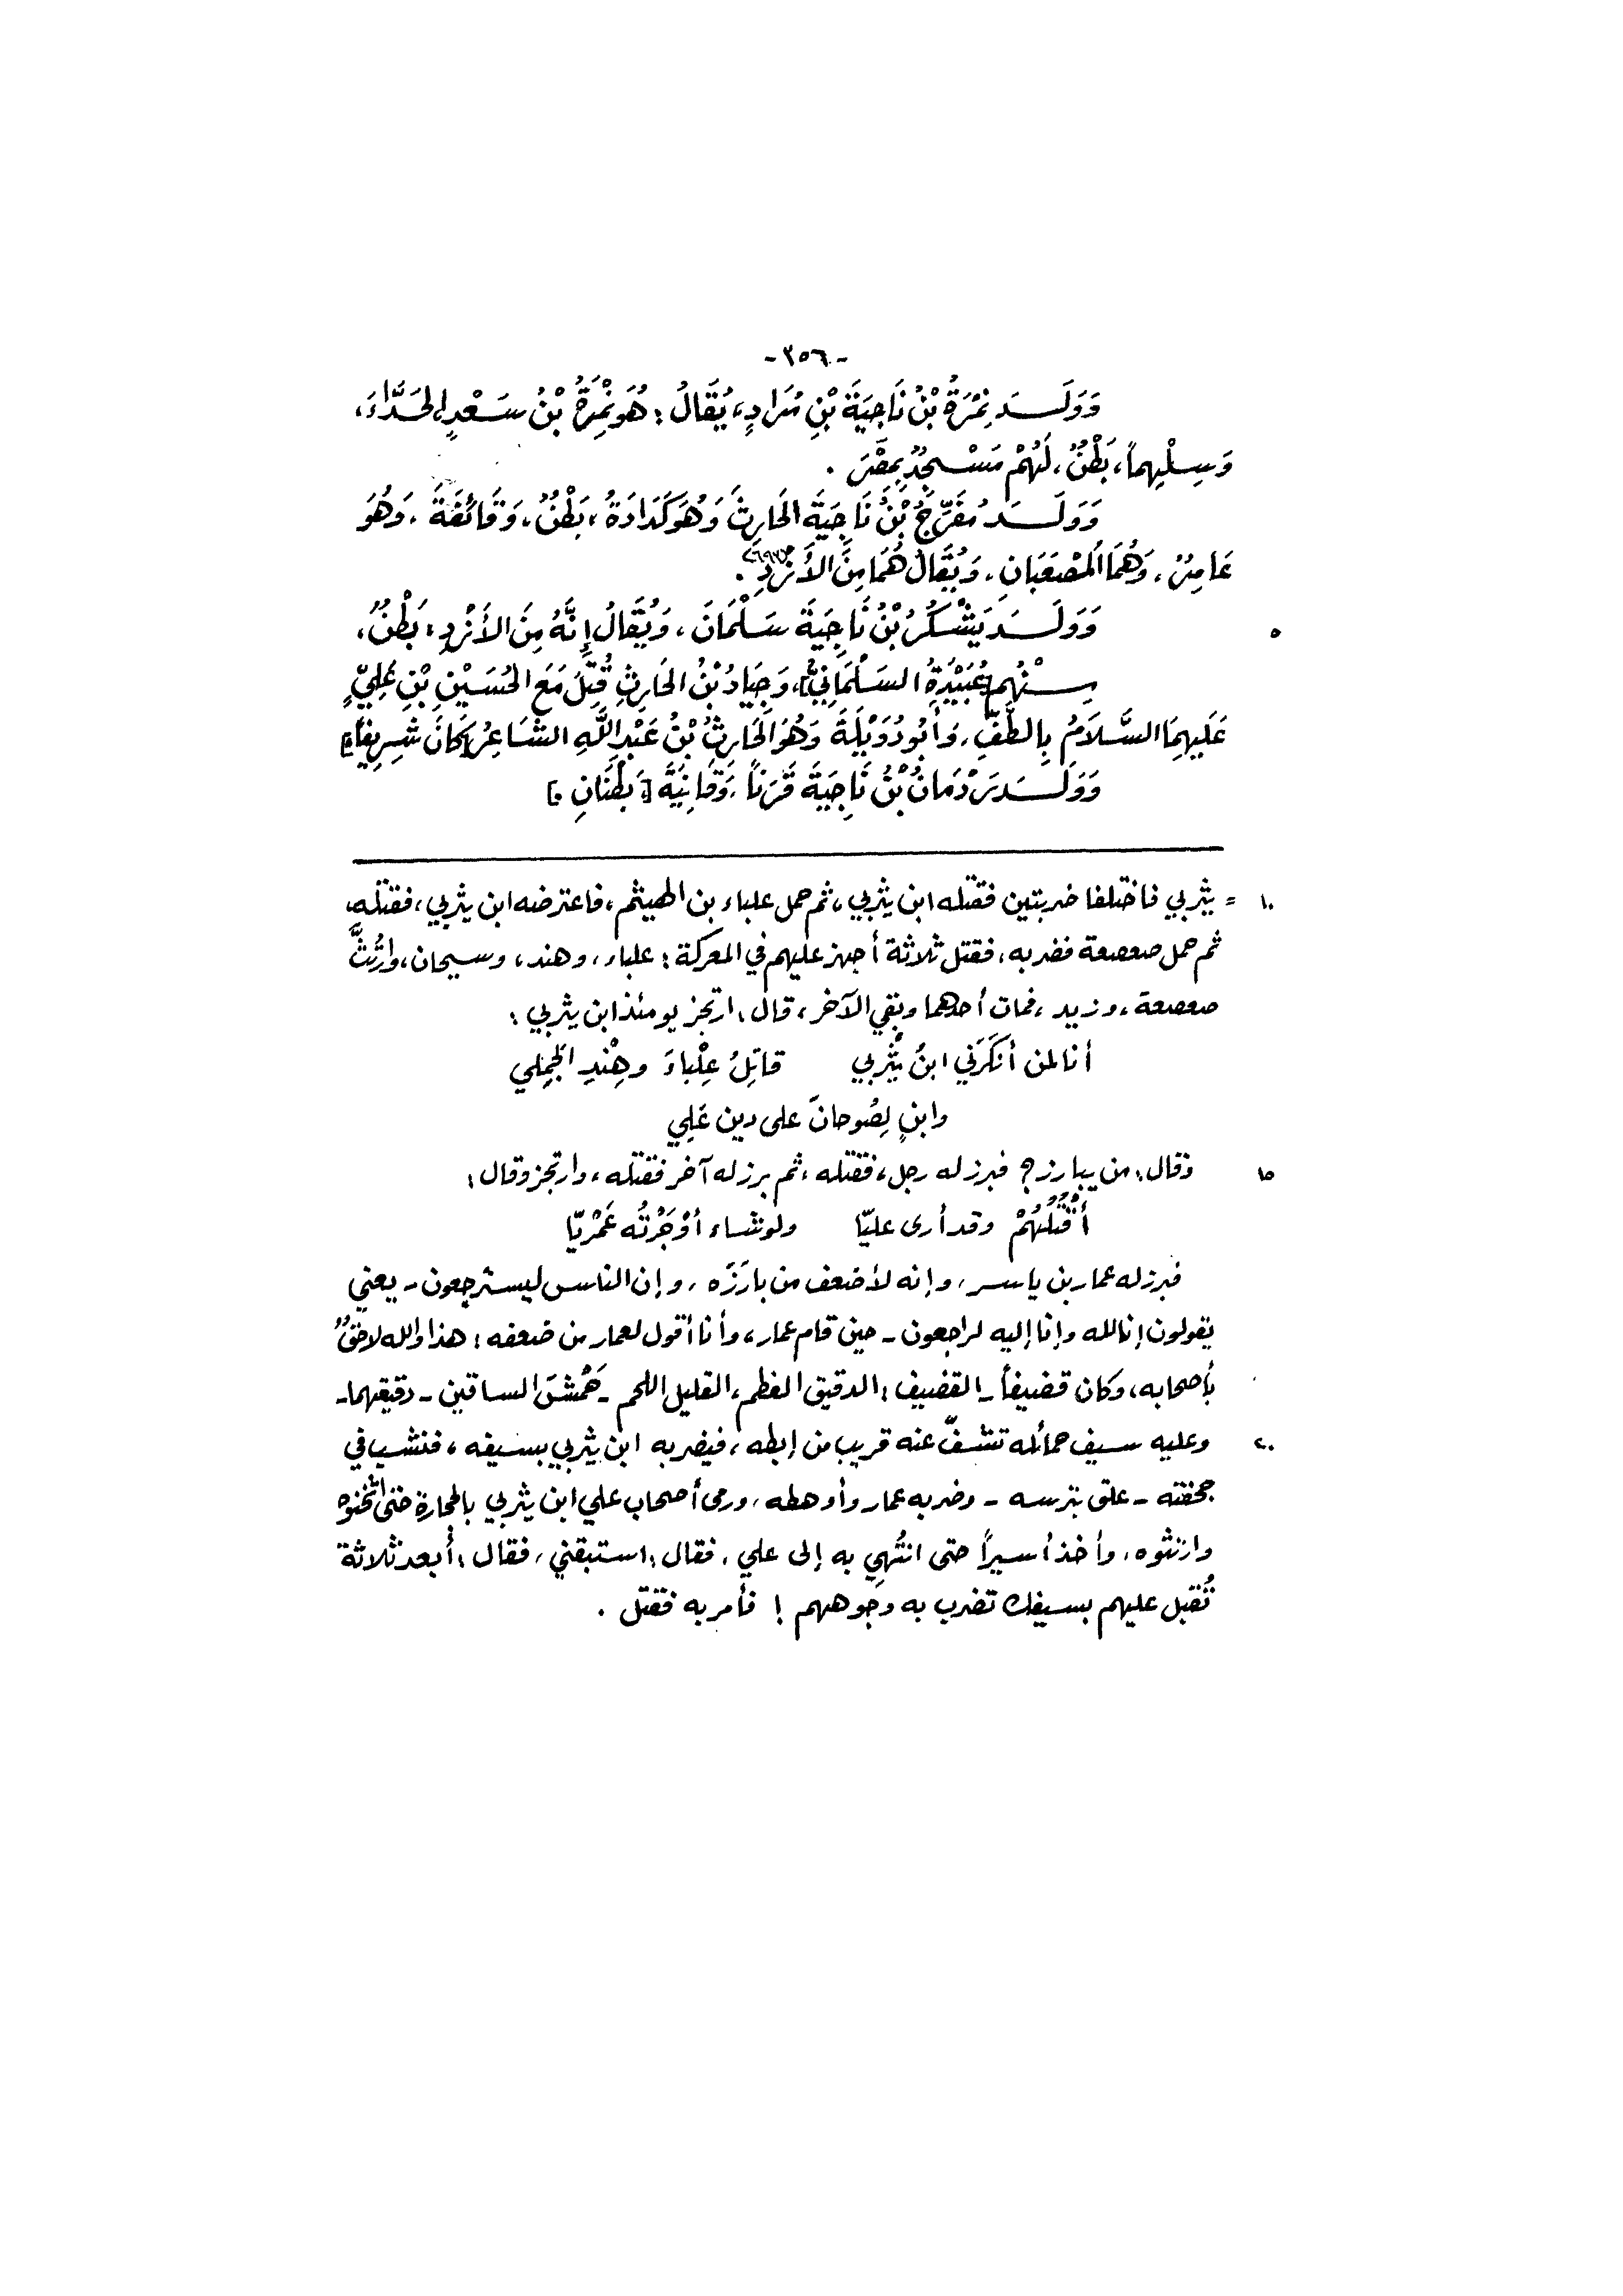 -٣٥٦-
وَوَلَـــدَ نِمْرَةُ بْنُ نَاجِيَةَ بْنِ مُرَادٍ، يُقَالُ: هُوَ نِمْرَةُ بْنُ سَعْدٍ، الحَدَّاءَ،
وَسِلْهِماً، بَطْنٌ، لَهُمْ مَسْجِدٌ بِمِصْرَ .
وَوَلَـــدَ مُفَرِّجُ بْنُ نَاجِيَةَ الحَارِثَ وَهُوَ كَدَادَةُ، بَطْنٌ، وَقَائِفَةَ، وَهُوَ
عَامِرٌ، وَهُمَا المُصْعَبَانِ، وَيُقَالُ هُمَا مِنَ الأَزْدِ .
٥ وَوَلَـــدَ يَشْكُرُ بْنُ نَاجِيَةَ سَلْمَانَ، وَيُقَالُ إِنَّهُ مِنَ الأَزْدِ، بَطْنٌ،
مِــنْهُم [عُبَيْدَةُ السَلْمَانِيُّ]، وَجِيَادُ بْنُ الحَارِثِ قُتِلَ مَعَ الحُسَيْنِ بْنِ عَلِيٍّ
عَلَيهِمَا السَّلاَمُ بِالطَّفِّ، وَأَبُو دُوَيْلَةَ وَهُوَ الحَارِثُ بْنُ عَبْدِ اللَّهِ الشَاعِرُ [كَانَ شَرِيفاً]
وَوَلَـــدَ رَدْمَانُ بْنُ نَاجِيَةَ قَرَناً، وَقَانِيَةَ [، بَطْنَانِ .]
١٠ = يثربي فاختلفا ضربتين فقتله ابن يثربي، ثم حمل علباء بن الهيثم، فاعترضه ابن يثربي، فقتله،
ثم حمل صعصعة فضربه، فقتل ثلاثة أجهز عليهم في المعركة: علباء، وهند، وسيحان، وارْتُثَّ
صعصعة، وزيد، فمات أحدهما وبقي الآخر، قال: ارتجز يومئذ ابن يثربي:
أنا لمن أنكَرَني ابنُ يثربي قاتِلُ عِلْباءَ وهِنْدِ الجَمِلي
وابنٍ لِصُوحانَ على دين عَلِي
١٥ وقال: من يبارز ؟ فبرز له رجل، فقتله، ثم برز له آخر فقتله، وارتجز وقال:
أَقْتُلُهُمْ وقد أرى عليّا ولو شاء أوْجَرْتُه عَمْريّا
فبرز له عمار بن ياسر، وإنه لأضعف من بارَزَه، وإن الناس ليسترجعون - يعني
يقولون إنا لله وإنا إليه لراجعون - حين قام عمار، وأنا أقول لعمار من ضعفه: هذا والله لاحقٌ
بأصحابه، وكان قضيفاً - القضيف: الدقيق العظم، القليل اللحم - حَمْشَ الساقين - دقيقهما -
٢٠ وعليه سيف حمائله تشفّ عنه قريب من إبطه، فيضربه ابن يثربي بسيفه، فنشب في
جحفته - علق بترسه - وضربه عمار وأوهطه، ورمى أصحاب علي ابن يثربي بالحجارة حتى أثخنوه
وارتثوه، وأخذ أسيراً حتى انتُهي به إلى علي، فقال: استبقني، فقال: أبعد ثلاثة
تُقبل عليهم بسيفك تضرب به وجوههم ! فأمر به فقتل .